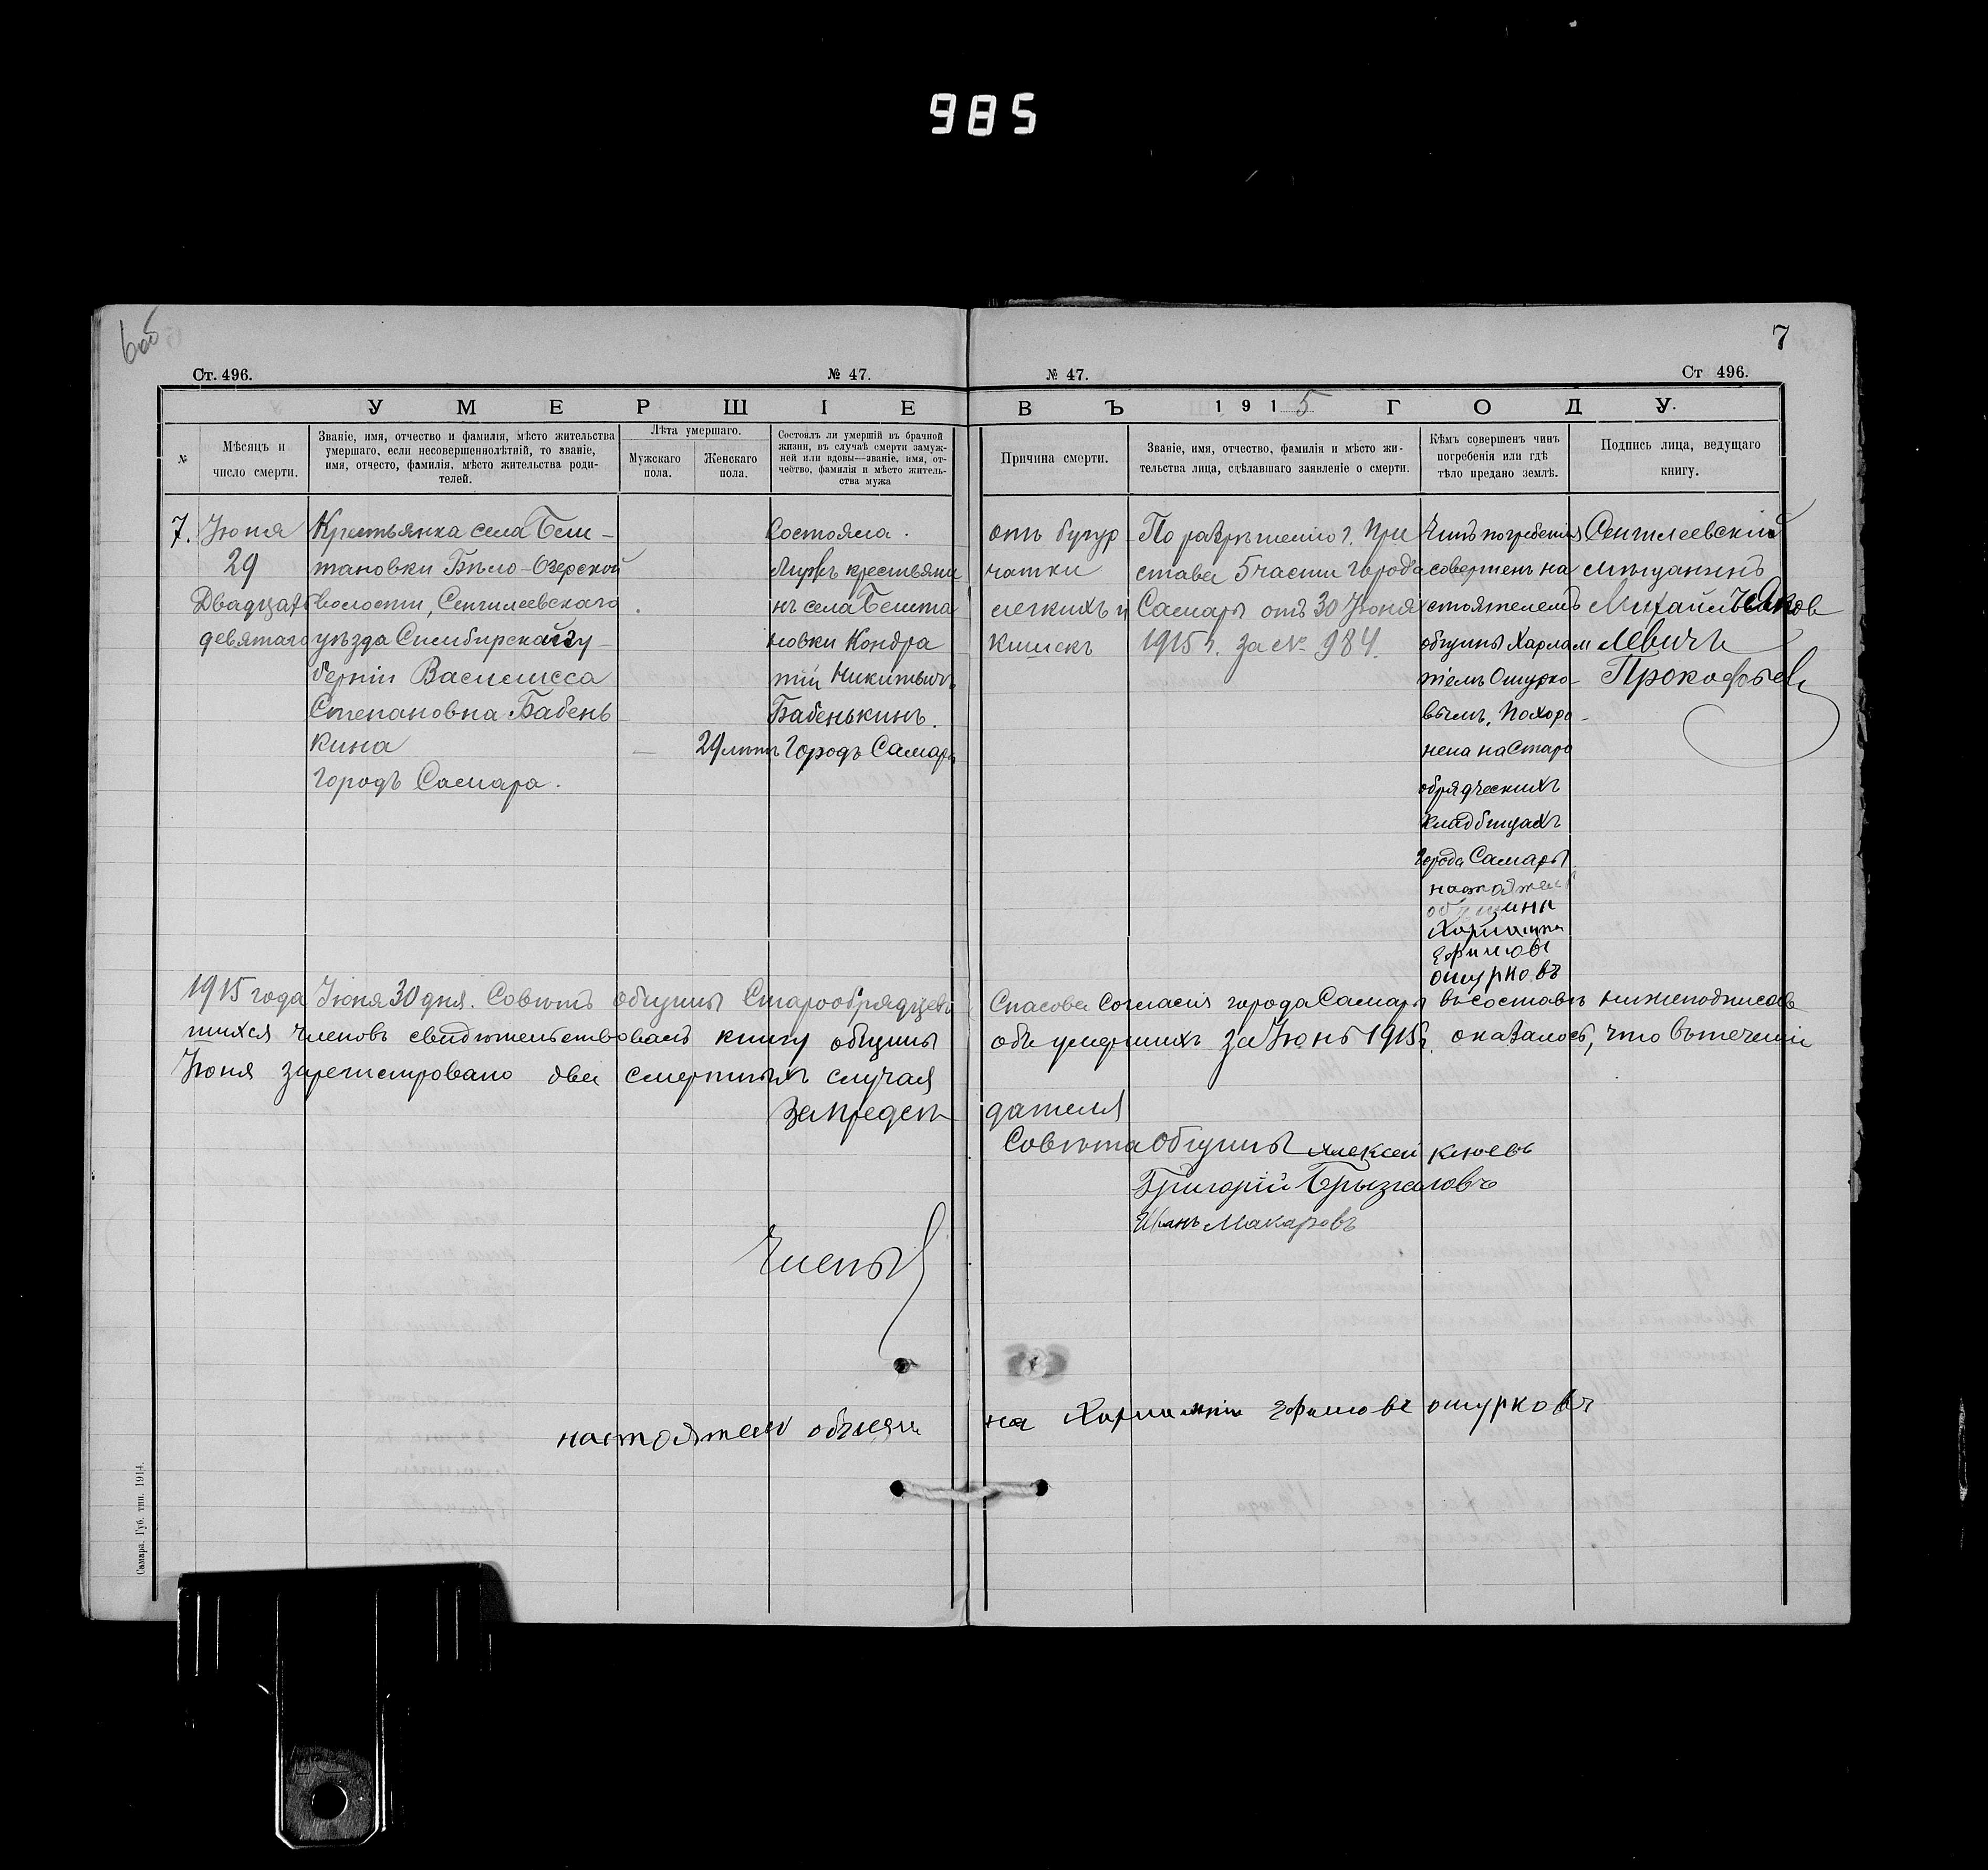 985
6 об
7
Ст. 496.
№ 47.
№ 47.
Ст 496.
УМЕРШІЕ ВЪ 1915 ГОДУ.
№
Мѣсяцъ и
число смерти.
Званіе, имя, отчество и фамилія, мѣсто жительства
умершаго, если несовершеннолѣтній, то званіе,
имя, отчесто, фамилія, мѣсто жительства роди-
телей.
Лѣта умершаго.
Мужскаго
пола.
Женскаго
пола.
Состоялъ ли умершій въ брачной
жизни, въ случаѣ смерти замуж-
ней или вдовы—званіе, имя, от-
чество, фамилія и мѣсто житель-
ства мужа
Причина смерти.
Званіе, имя, отчество, фамилія и мѣсто жи-
тельства лица, сдѣлавшаго заявленіе о смерти.
Кѣмъ совершенъ чинъ
погребенія или гдѣ
тѣло предано землѣ.
Подпись лица, ведущаго
книгу.
7.
Іюня
29
Двадцать
девятаго
Крестьянка села Бек-
тановки Бѣло-Озерской
волости, Сенгилеевскаго
уѣзда Симбирской гу-
берніи Василисса
Степановна Бабень
кина
городъ Самара.
29 лѣтъ
Состояла.
Мужъ крестьяни
нъ села Бекта
новки Кондра
тій Никитичъ
Бабенькинъ.
Городъ Самара
отъ бугур
чатки
легкихъ и
кишекъ
По разрѣшенію г. При
става 5 части города
Самары отъ 30 Іюня
1915 г. за № 984.
Чинъ погребенія
совершенъ на
стоятелемъ
общины Харлам
піемъ Ошурко-
вымъ. Похоро-
нена на Старо
обрядческихъ
кладбищахъ
города Самары
настоятель
общины
Харлампи
Ефимовъ
ошурковъ
Сенгилеевскій
мѣщанинъ
Михаилъ Яков
левичъ
Прокофьевъ
1915 года Іюня 30 дня. Совѣтъ общины Старообрядцевъ Спасова Согласія города Самары въ составѣ нижеподписав
шихся членовъ свидѣтельствовалъ книгу общины объ умершихъ за Іюнь 1915 г. оказалось, что въ теченіи
Іюня зарегистровано два смертныхъ случая
За предсѣ дателя
Совѣта Общины Алексей Клюевъ
Григорій Брызгаловъ
Иванъ Макаровъ
Члены
настоятель общины на Харлампи Ефимовъ ошурковъ
Самара. Губ. тип. 1914.